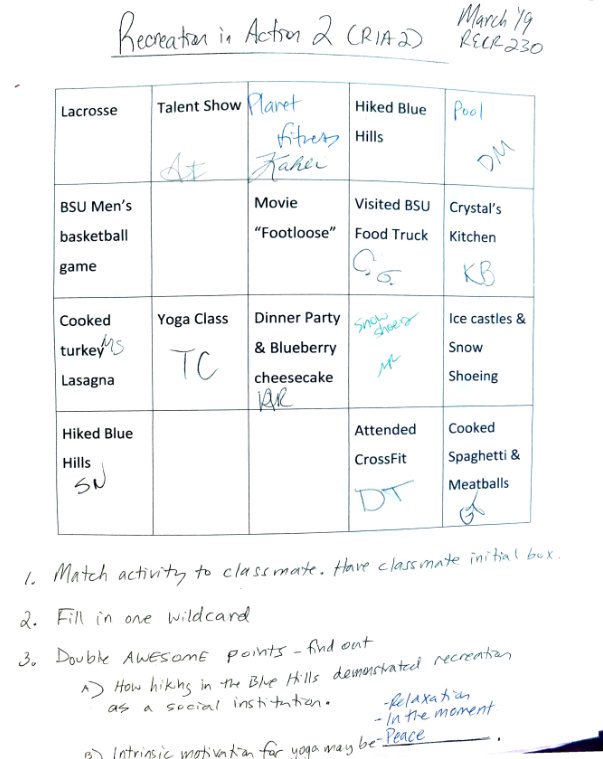 Recreation in Action 2 (RIA2)
March '19
RECR 230
Lacrosse
Talent Show
Planet
fitness
Hiked Blue
Hills
Pool
DM
BSU Men's
basketball
game
Movie
"Footloose"
Visited BSU
Food Truck
C.G.
Crystal's
Kitchen
KB
Cooked
turkey MS
Lasagna
Yoga Class
TC
Dinner Party
& Blueberry
cheesecake
Snow
shoes
Ice castles &
Snow
Shoeing
Hiked Blue
Hills
SN
Attended
CrossFit
DT
Cooked
Spaghetti &
Meatballs
1. Match activity to classmate. Have classmate initial box.
2. Fill in one wildcard
3. Double AWESOME points - find out
A) How hiking in the Blue Hills demonstrated recreation
as a social institution.
- Relaxation
- In the moment
B) Intrinsic motivation for yoga may be - Peace.